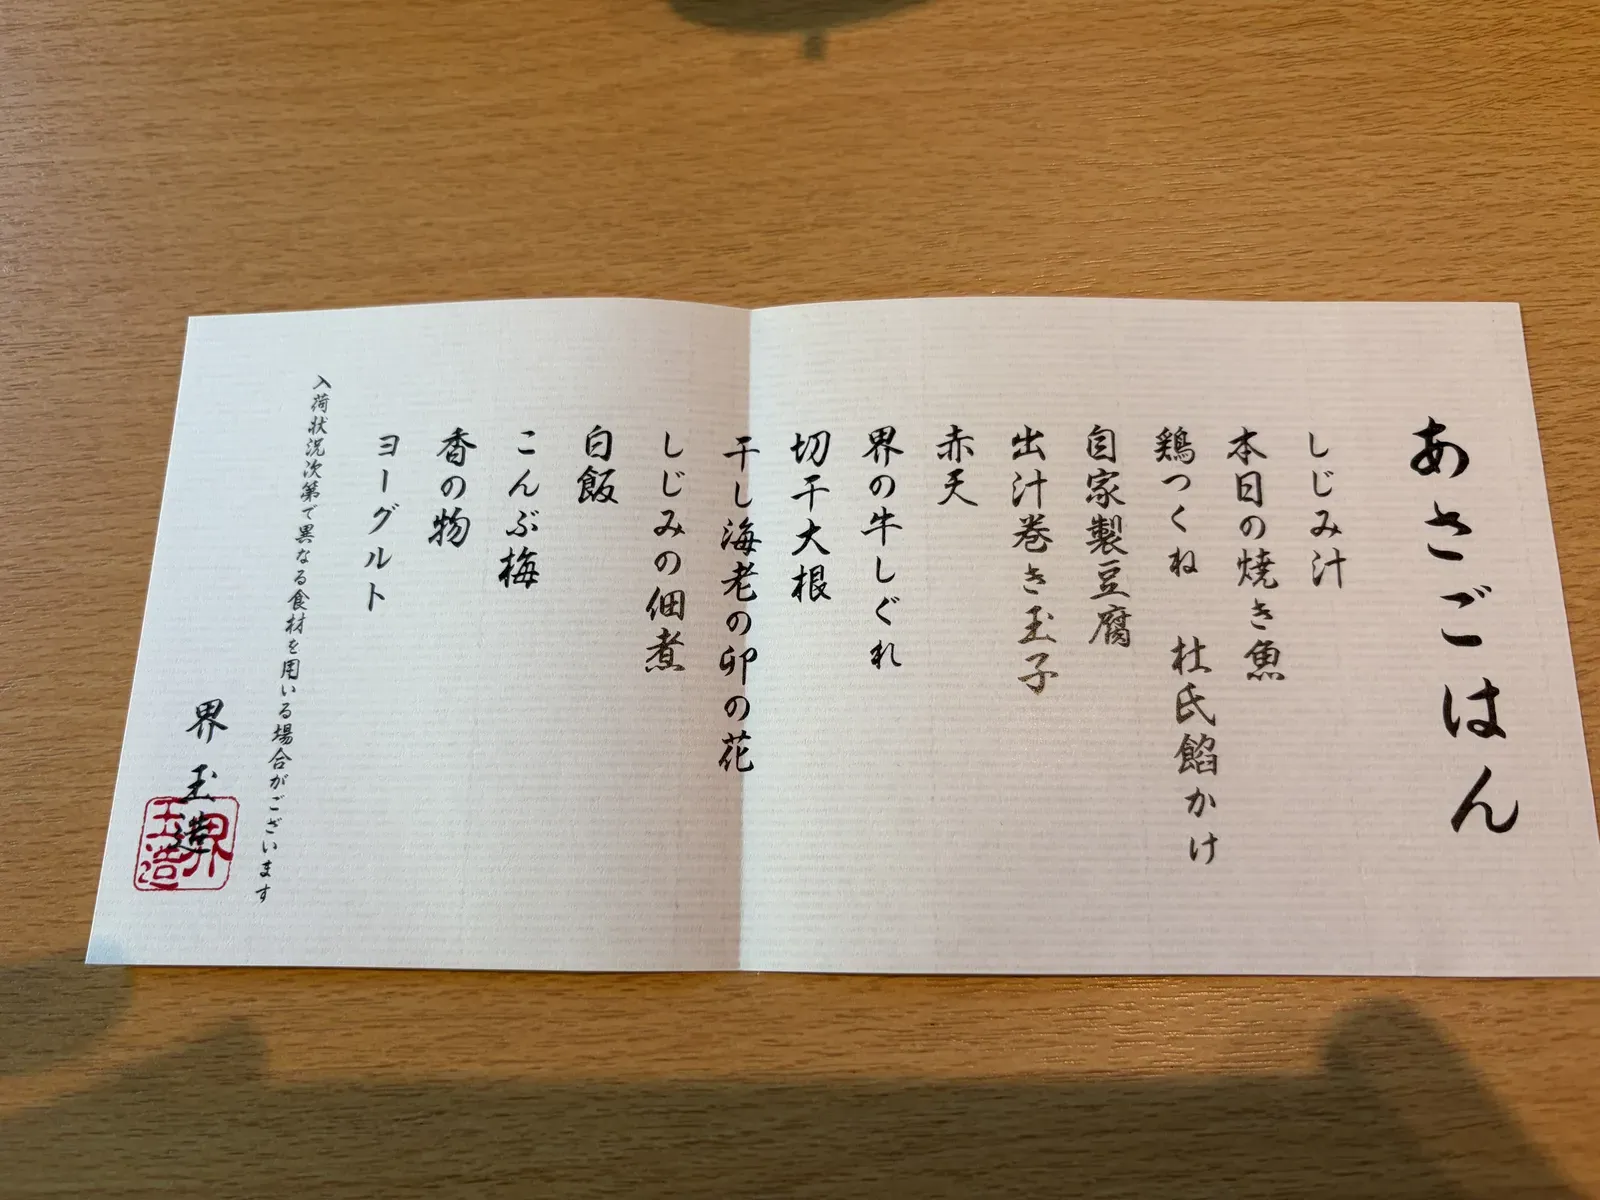 あさごはん
しじみ汁
本日の焼き魚
鶏つくね　杜氏餡かけ
自家製豆腐
出汁巻き玉子
赤天
界の牛しぐれ
切干大根
干し海老の卯の花
しじみの佃煮
白飯
こんぶ梅
香の物
ヨーグルト
入荷状況次第で異なる食材を用いる場合がございます
界　玉造
界
玉造